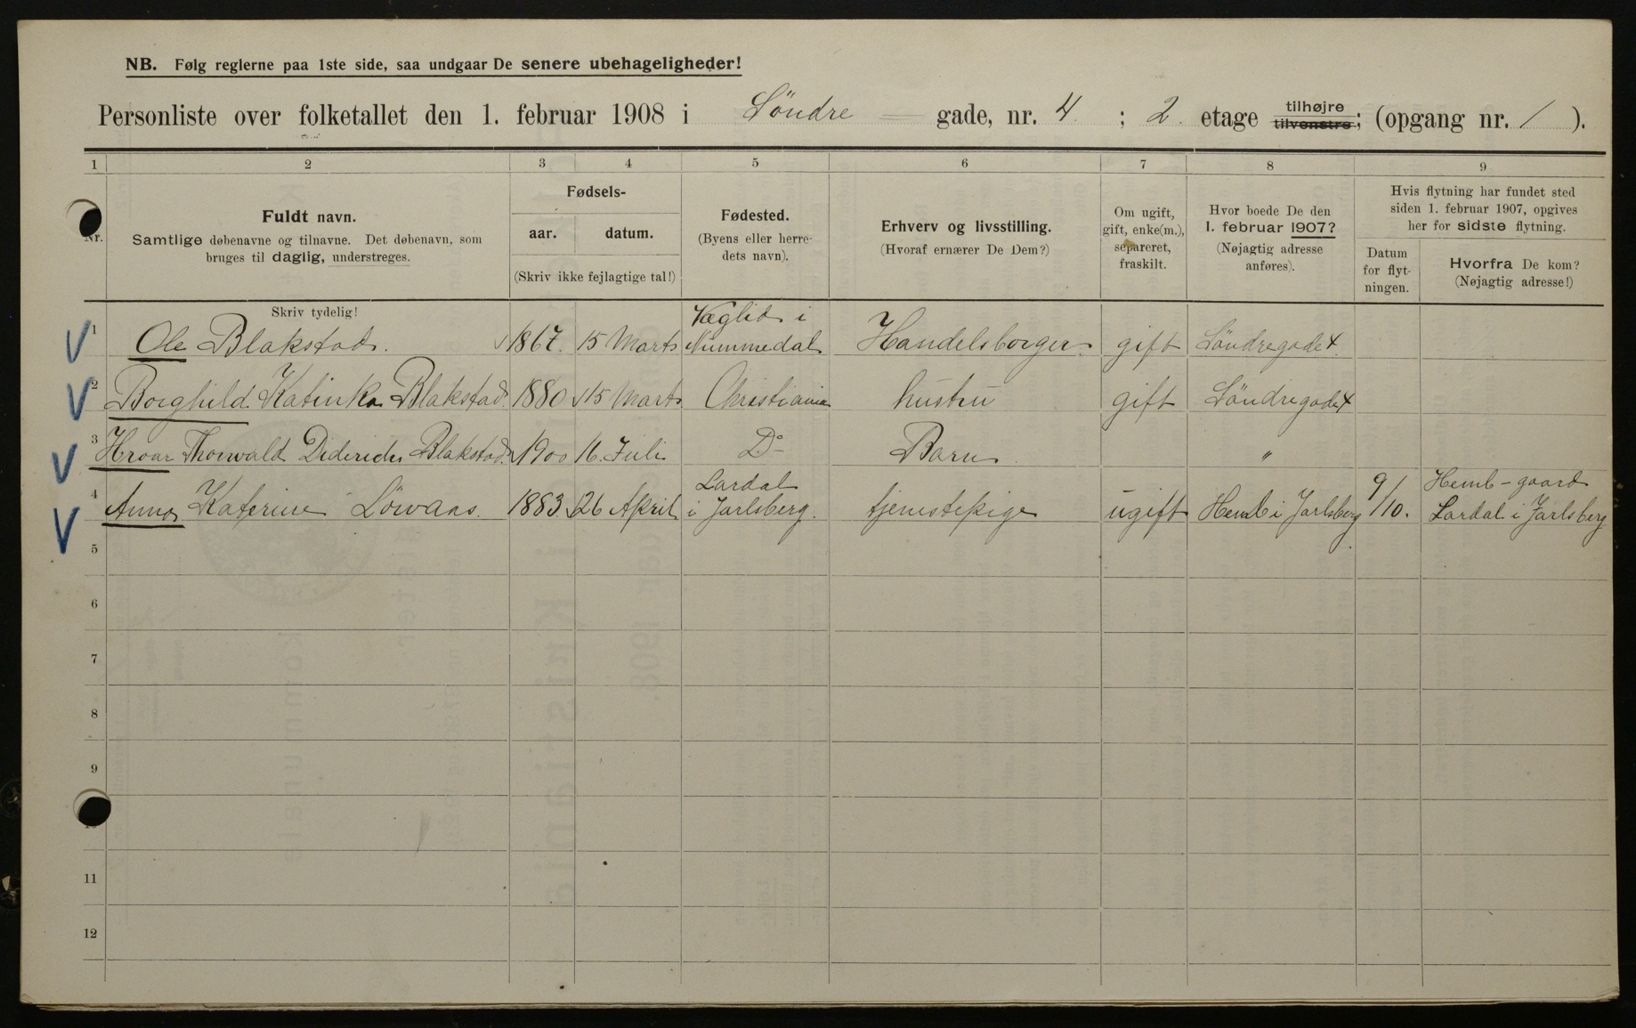 NB. Følg reglerne paa 1ste side, saa undgaar De senere ubehageligheder!
Personliste over folketallet den 1. februar 1908 i Söndre gade, nr. 4 ; 2. etage tilhøjre tilvenstre; (opgang nr. 1 ).
1 2 3 4 5 6 7 8 9
Nr.
Fuldt navn.
Samtlige døbenavne og tilnavne. Det døbenavn, som
bruges til daglig, understreges.
Skriv tydelig!
Fødsels-
aar. datum.
(Skriv ikke fejlagtige tal!)
Fødested.
(Byens eller herre-
dets navn).
Erhverv og livsstilling.
(Hvoraf ernærer De Dem?)
Om ugift,
gift, enke(m.),
separeret,
fraskilt.
Hvor boede De den
1. februar 1907?
(Nøjagtig adresse
anføres).
Hvis flytning har fundet sted
siden 1. februar 1907, opgives
her for sidste flytning.
Datum
for flyt-
ningen.
Hvorfra De kom?
(Nøjagtig adresse!)
1 Ole Blakstad. 1867. 15 Marts Væglid i Nummedal Handelsborger gift Söndregade 4
2 Borghild Katinka Blakstad 1880 15 Marts Christiania hustru gift Söndregade 4
3 Hroar Thorvald Diderich Blakstad 1900 16. Juli Do Barn "
4 Anna Katerine Löwaas. 1883 26 April Lardal i Jarlsberg. tjenestepige ugift Hemb i Jarlsberg 9/10. Hemb-gaard Lardal i Jarlsberg
5
6
7
8
9
11
12